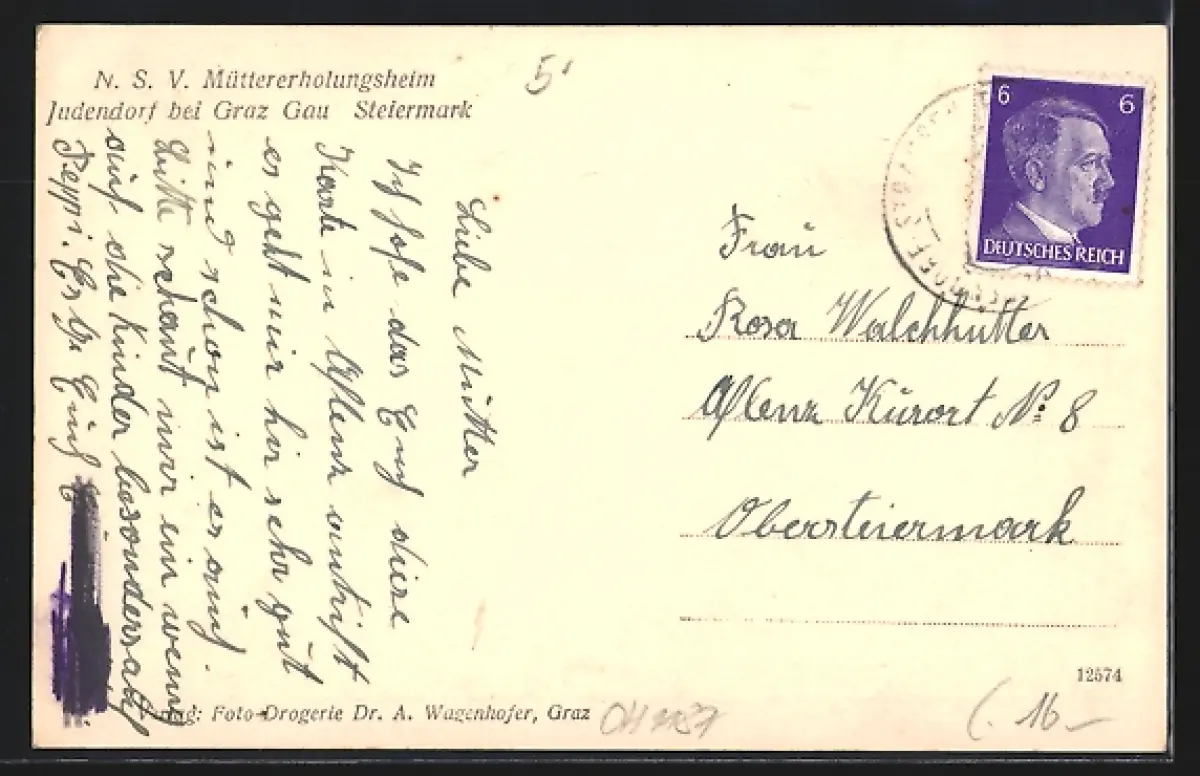 N. S. V. Müttererholungsheim
Judendorf bei Graz Gau Steiermark
Liebe Mutter
Ich hofe das Euch diese
Karte in Aflenz antrift
es geht mir hir sehr gut
und schon ist es auch.
Bitte schaut mir ein wenig
auf die Kinder besonders auf
Peppi. Es Gr. Euch
5
6 6
DEUTSCHES REICH
Frau
Rosa Walchhütter
Aflenz Kurort No. 8
Obersteiermark
12574
Verlag: Foto-Drogerie Dr. A. Wagenhofer, Graz
16-